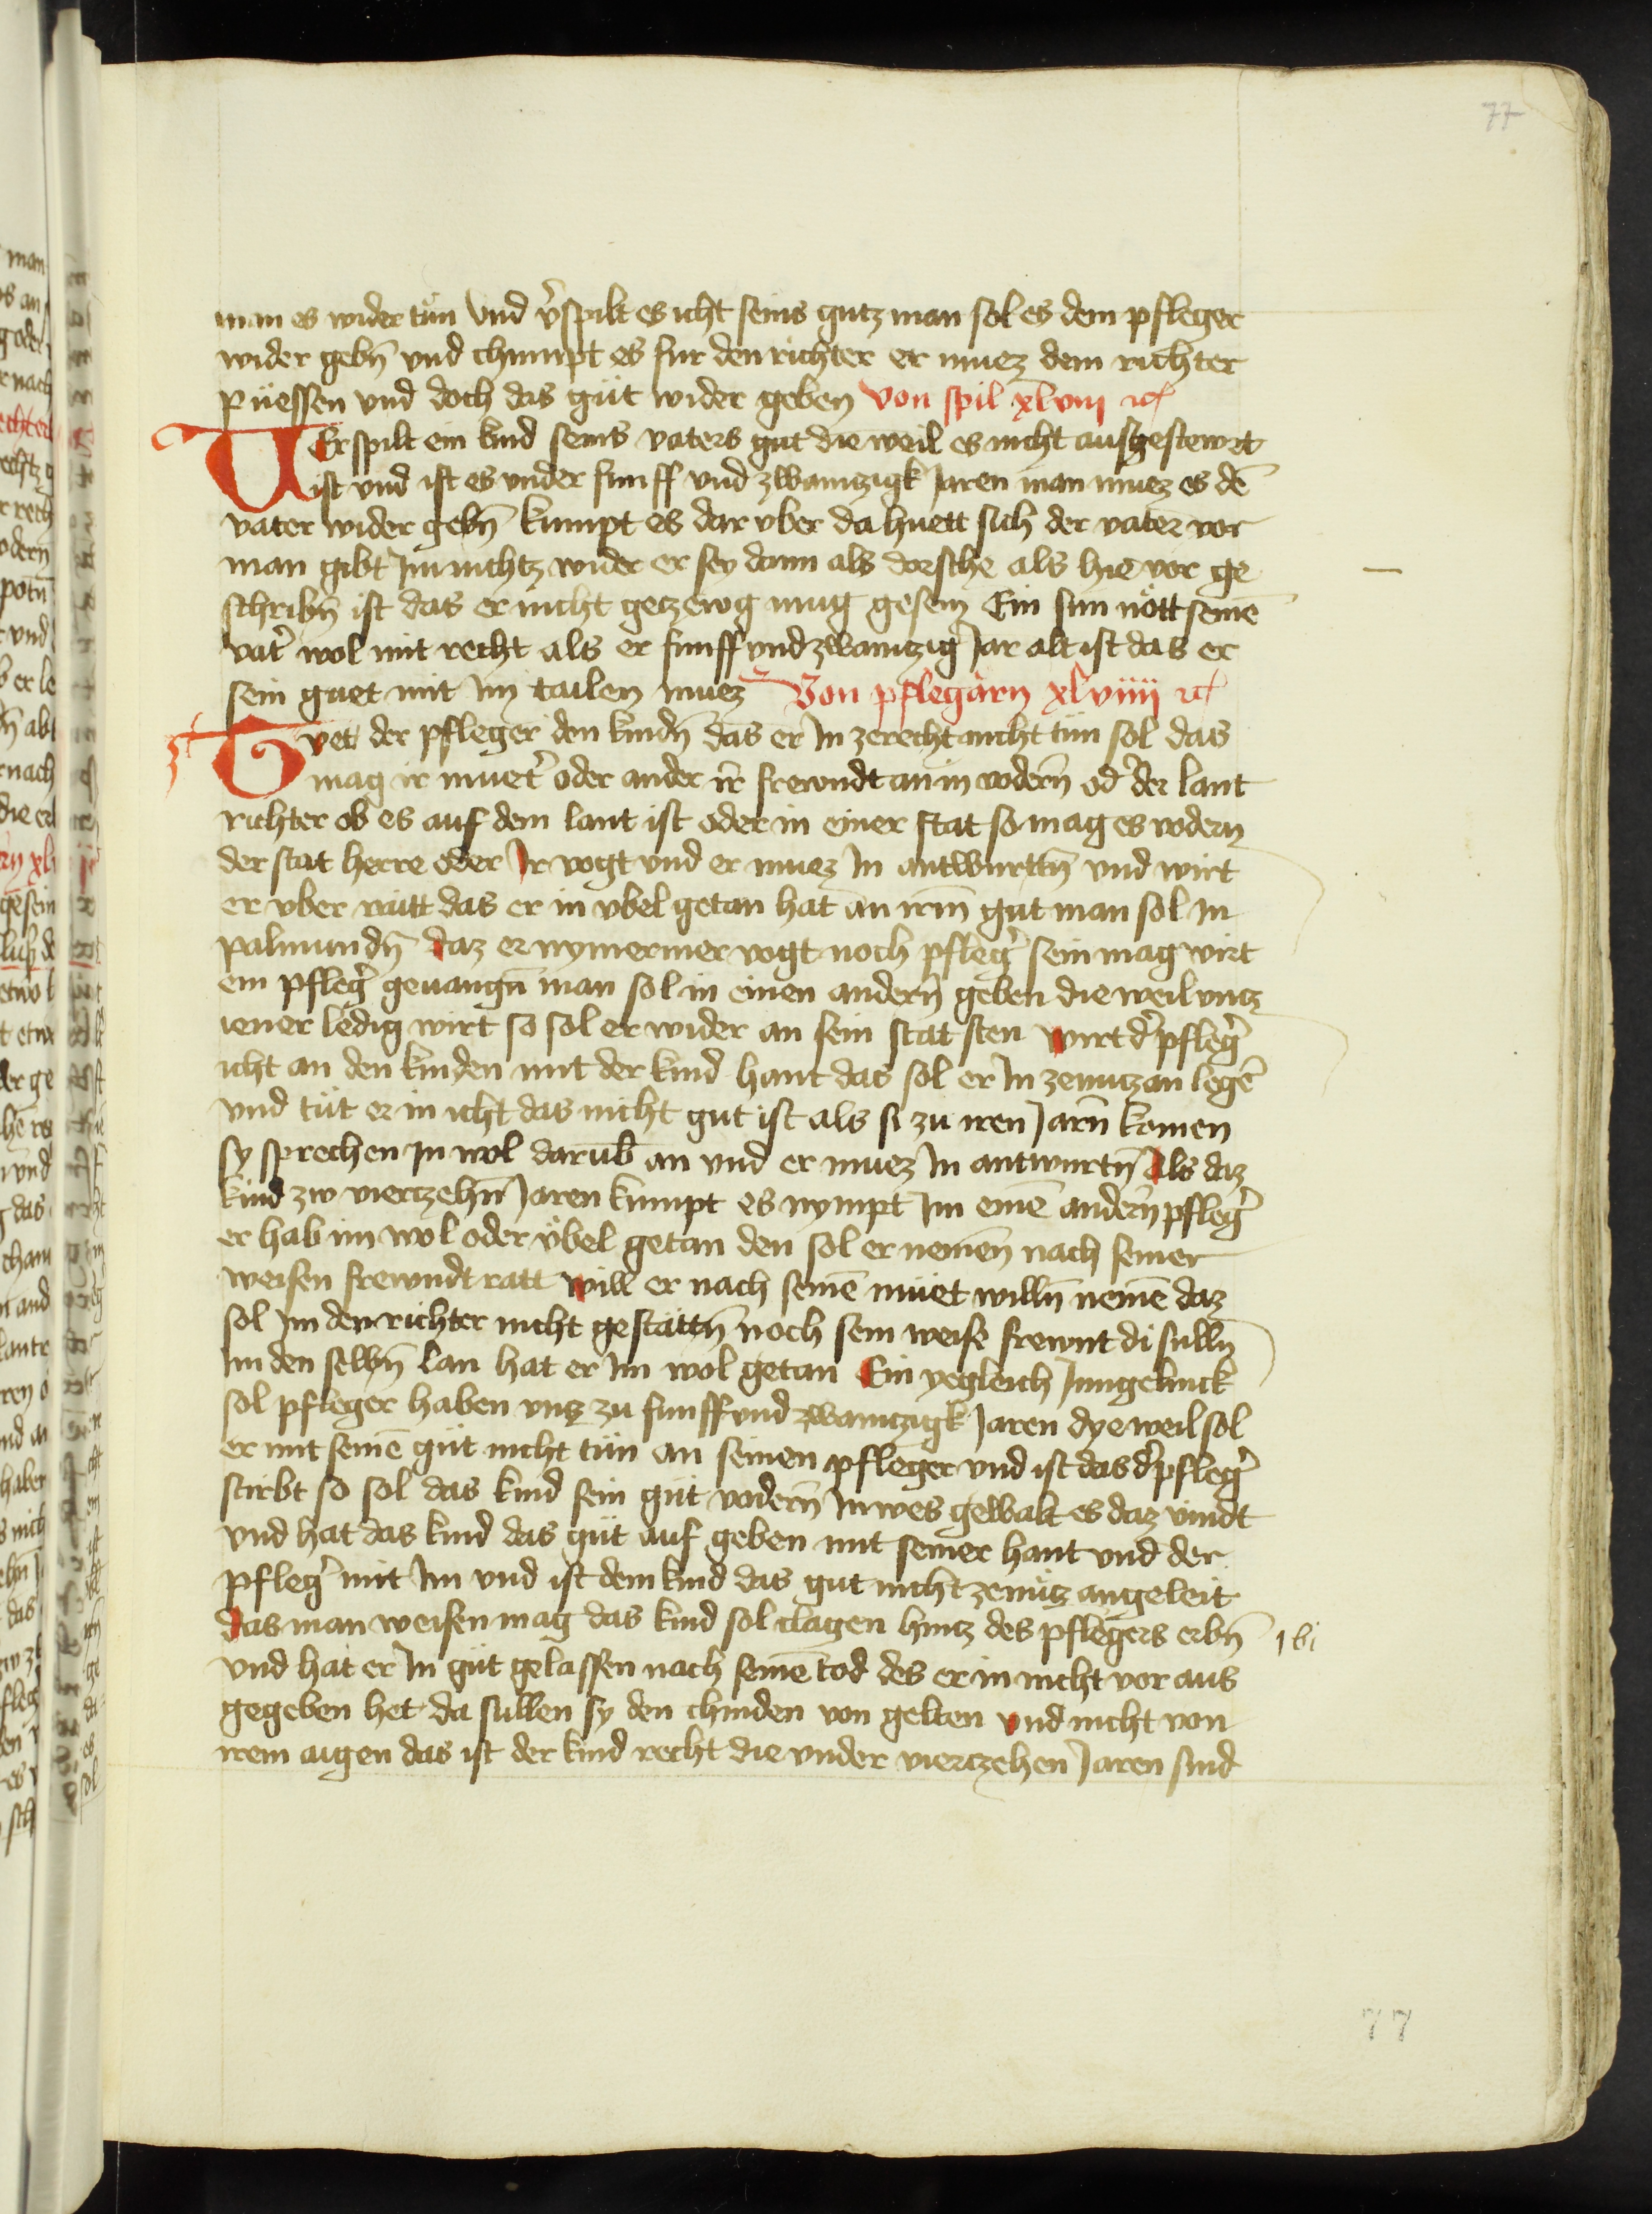 77
man es wider tun Vnd v̾spilt es icht seins gutz man sol es dem pfleger
wider gebn̄ vnd chumpt es fur den richter er muez dem richter
püessen vnd doch das güt wider geben Von spil xlviii
VEr spilt ein kind seins vaters gut die weil es nicht ausgestewrt
ist vnd ist es vnder funff vnd zwaintzigk Jaren man muez es dē
vater wider gebn̄ kumpt es dar vber da huett sich der vater vor
man gibt Im nichtz wider er sey dann als dorsche als hie vor ge
schribn̄ ist das er nicht getzewg mug gesein Ein sun nött seinē
vat̾ wol mit recht als er funff vnd zwaintzig Jar alt ist das er
sein guet mit Im tailen muez Von pflegärn xlviiii
Tvet der pfleger den kindn̄ das er In zerecht nicht tün sol das
mag ir muet̾ oder ander ir̄ frewndt an in vodern̄ od̾ der lant
richter ob es auf dem lant ist oder in einer stat so mag es vodern
der stat herre oder Ir vogt vnd er muez In antwurttn̄ vnd wirt
er vber rütt das er in vbel getan hat an irm̄ gut man sol In
palmundn̄ daz er nymermer vogt noch pfleg̾ sein mag wirt
ein pfleg̾ geuangn̄ man sol in einen andern̄ geben die weil vntz
iener ledig wirt so sol er wider an sein stat sten wirt d̾ pfleg̾
icht an den kinden mit der kind hant das sol er In zenutz an legē
vnd tüt er in icht das nicht gut ist als si zu iren Jarn̄ komen
sy sprechen In wol darub̄ an vnd er muez In antwurtn̄ Als daz
kind zw viertzehn̄ Jaren kumpt es nympt Im einē andern̄ pfleg̾
er hab im wol oder vbel getan den sol er nemen̄ nach seiner
weisen frewndt ratt will er nach seinē müet willn̄ nemē daz
sol Im den richter nicht gestattn̄ noch sein weise frewnt di sulln̄
Im den selbn̄ lan hat er Im wol getan Ein yegleich Jungelinck
sol pfleger haben vntz zu funff vnd zwaintzigk Jaren dye weil sol
er mit seinē güt nicht tün an seinen pfleger vnd ist das d̾ pfleg̾
stirbt so sol das kind sein güt vodern̄ In wes gewalt es daz vindt
vnd hat das kind das güt auf geben mit seiner hant vnd der
pfleg̾ mit Im vnd ist dem kind das gut nicht zenütz angeleit
das man weisen mag das kind sol clagen hintz des pflegers erbn̄
vnd hat er In güt gelassen nach seinē tod des er in nicht vor aus
gegeben het da sullen sy den chinden von gelten vnd nicht von
irem aigen das ist der kind recht die vnder viertzehen Jaren sind
77